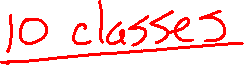 10 classes